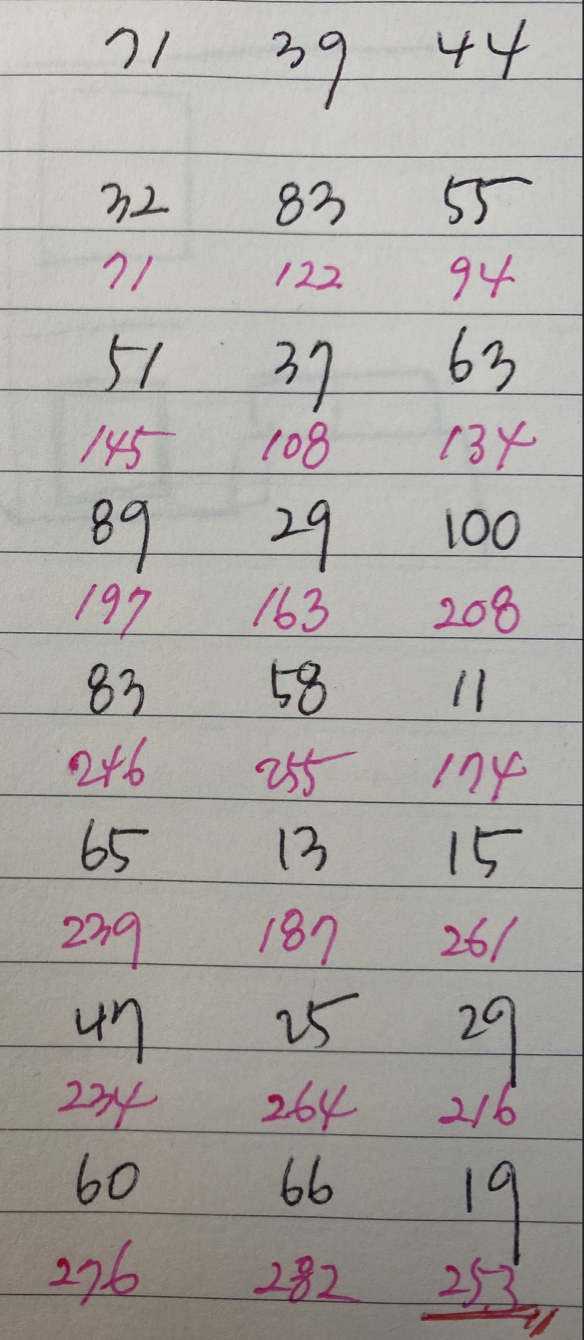 71 39 44
32 83 55
71 122 94
51 37 63
145 108 134
89 29 100
197 163 208
83 58 11
246 255 174
65 13 15
239 187 261
47 25 29
234 264 216
60 66 19
276 282 253